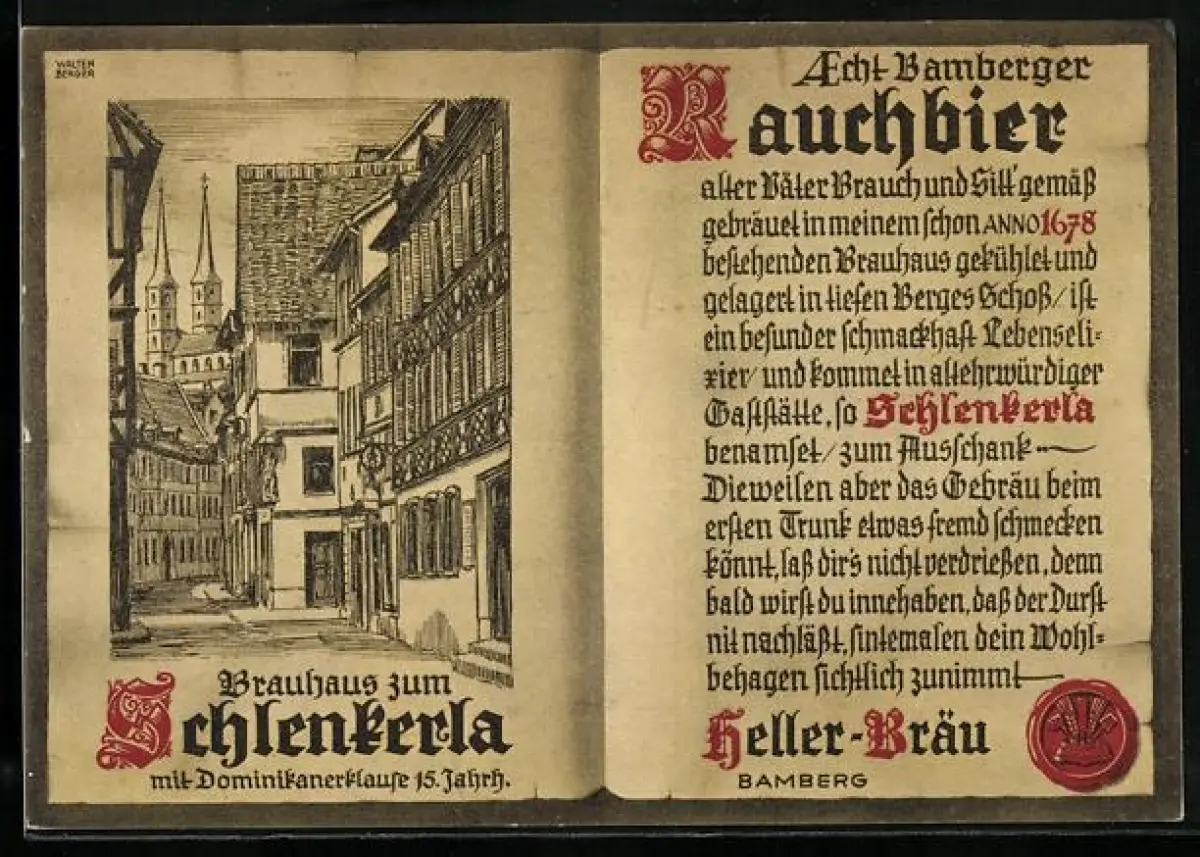 WALTER
BERGER
Brauhaus zum
Schlenkerla
mit Dominikanerklause 15. Jahrh.
Æcht Bamberger
Rauchbier
alter Väter Brauch und Sitt' gemäß
gebräuet in meinem schon ANNO 1678
bestehenden Brauhaus gekühlet und
gelagert in tiefen Berges Schoß/ ist
ein besunder schmackhaft Lebenseli=
xier/ und kommet in altehrwürdiger
Gaststätte, so Schlenkerla
benamset/ zum Ausschank
Dieweilen aber das Gebräu beim
ersten Trunk etwas fremd schmecken
könnt, laß dir's nicht verdrießen, denn
bald wirst du innehaben, daß der Durst
nit nachläßt, sintemalen dein Wohl=
behagen sichtlich zunimmt
Heller-Bräu
BAMBERG